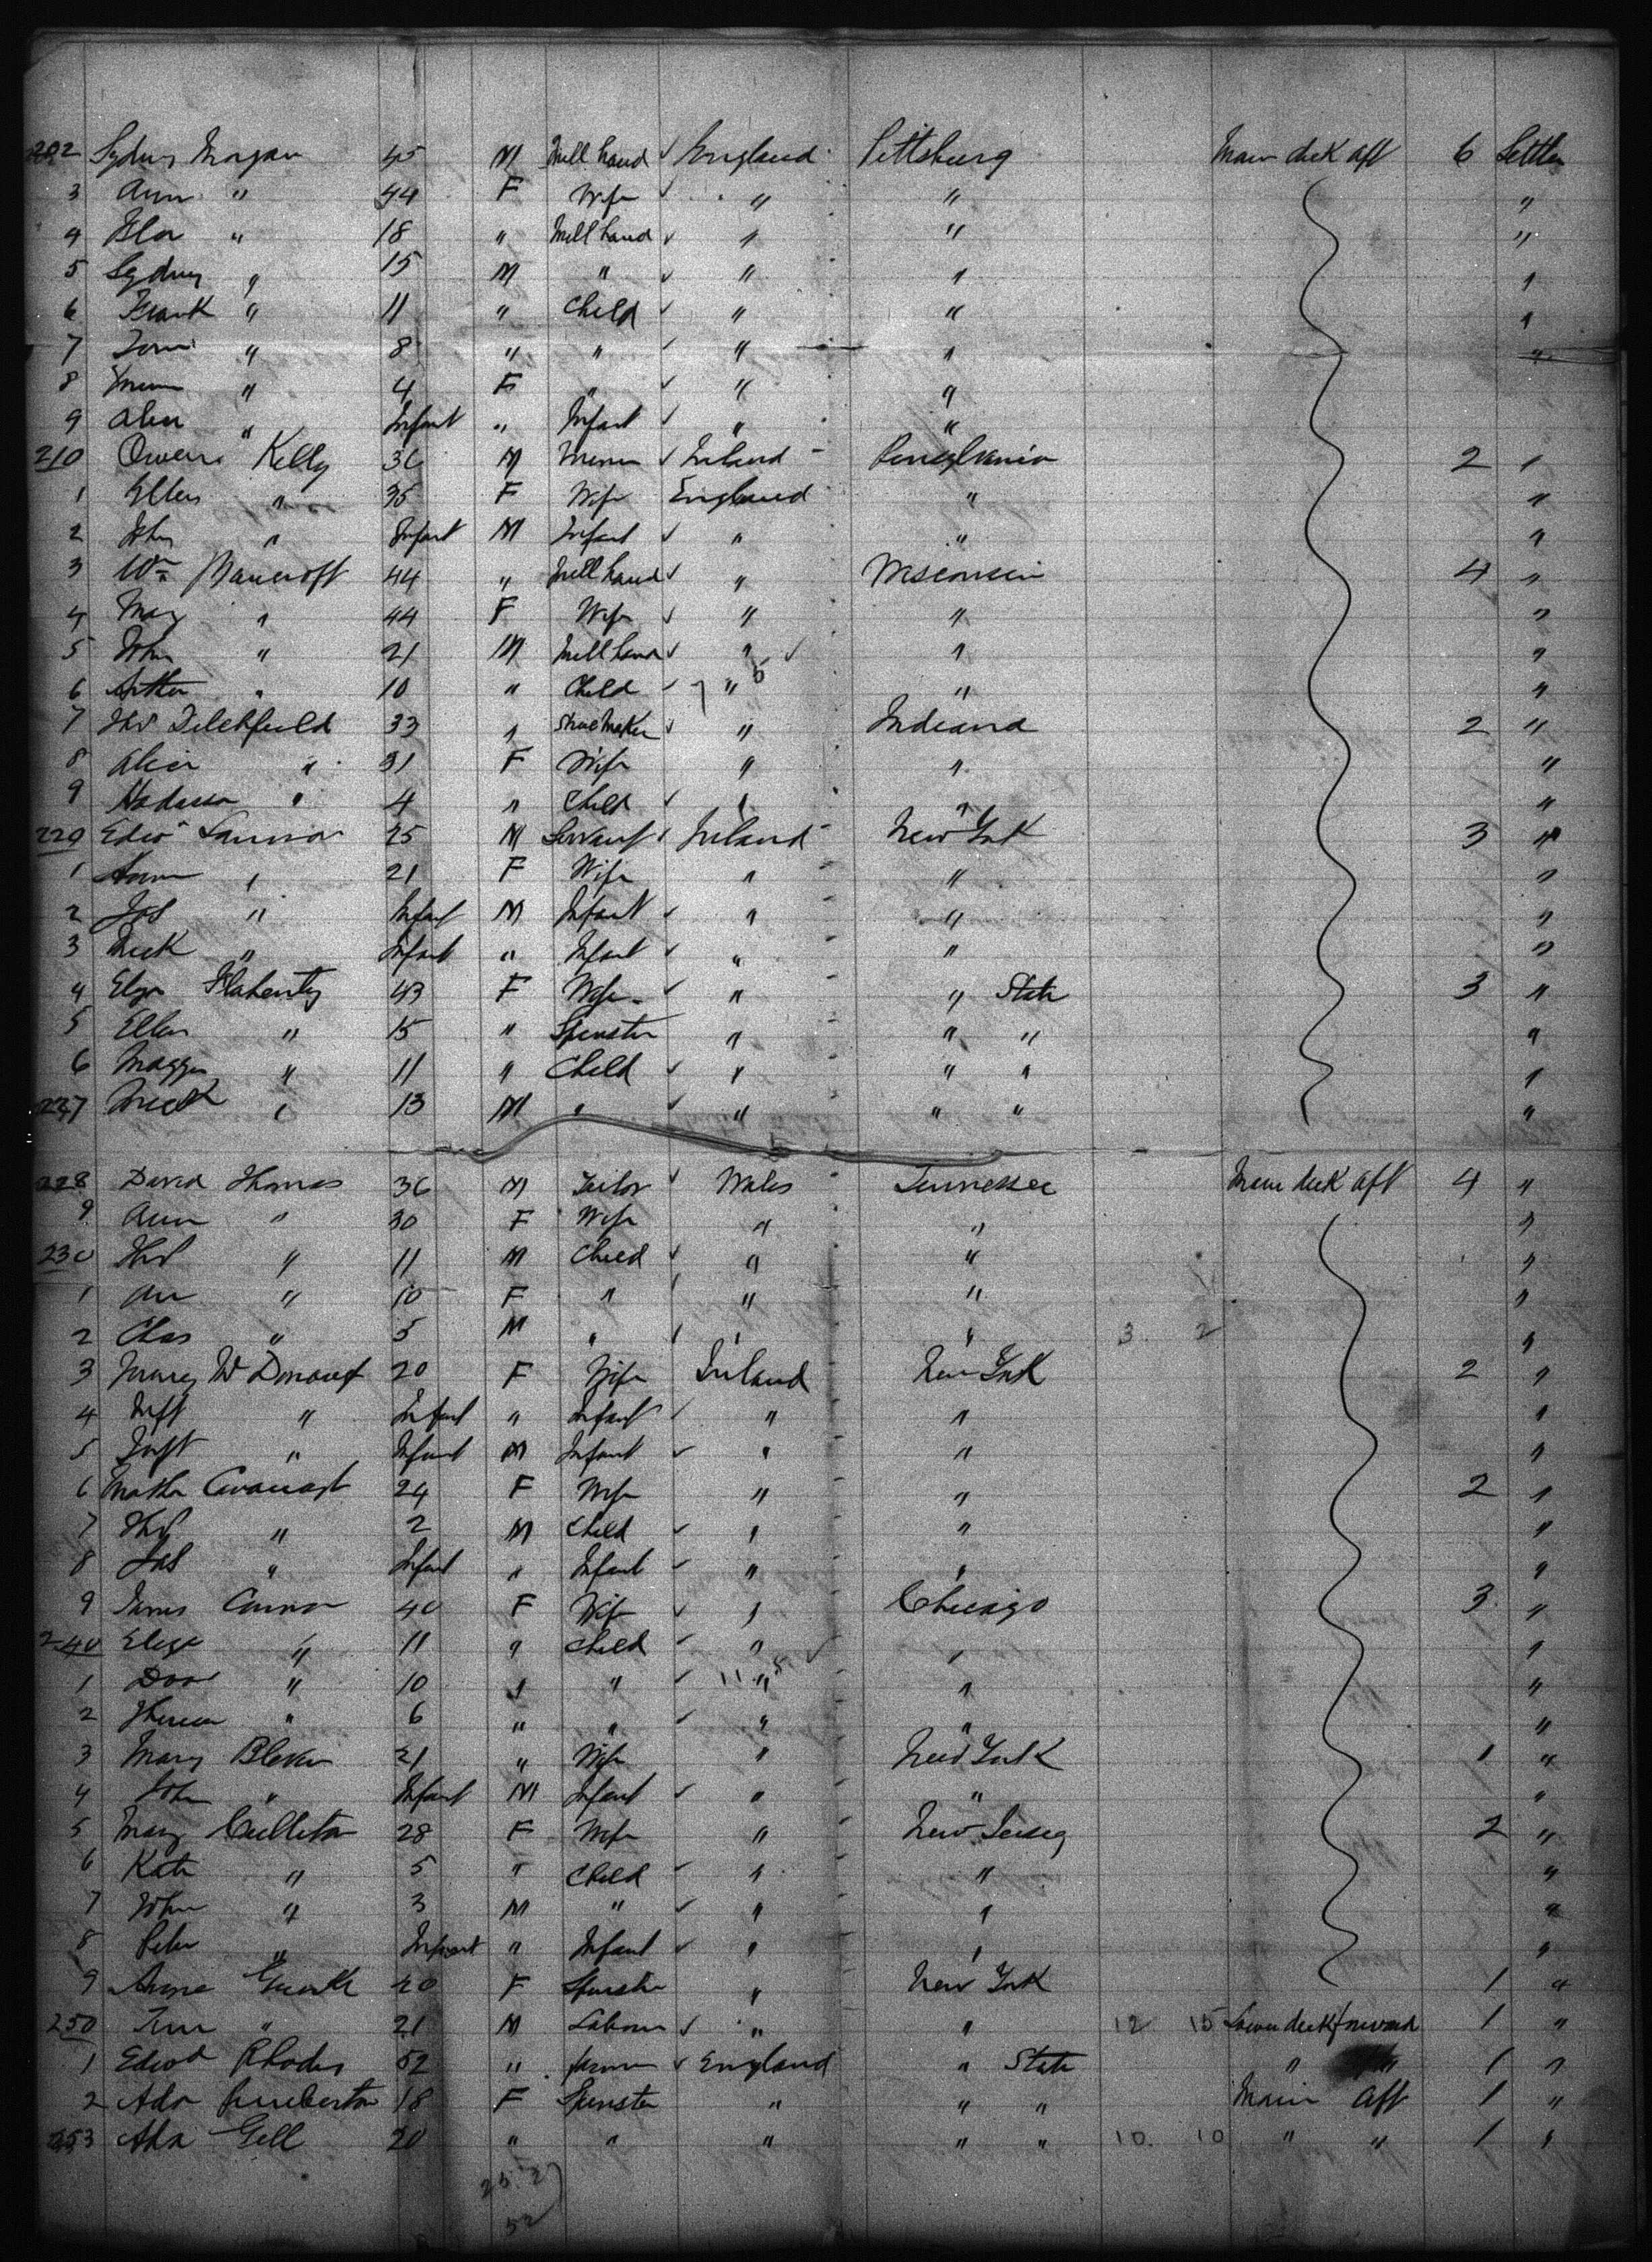 202 Sydney Morgan 45 M Mill hand England Pittsburg Main deck aft 6 Settler
3 Ann " 44 F Wife " " "
4 " 18 " Mill hand " " "
5 Sydney " 15 M " " " "
6 Frank " 11 " Child " " "
7 Tom " 8 " " " " "
8 " 4 F " " " "
9 Alice " Infant " Infant " " "
210 Owen Kelly 36 M Miner Ireland Pensylvania 2 "
1 Ellen " 35 F Wife England " "
2 John " Infant M Infant " " "
3 Wm Bancroft 44 " Mill hand " Wisconsin 4 "
4 Mary " 44 F Wife " " "
5 John " 21 M Mill hand " " "
6 Arthur " 10 " Child " " "
7 Thos 33 " Shoe Maker " Indiana 2 "
8 Alice " 31 F Wife " " "
9 " 4 " Child " " "
220 Edwd 25 M Servant Ireland New York 3 "
1 " 21 F Wife " " "
2 Jos " Infant M Infant " " "
3 Mick " Infant " Infant " " "
4 Eliza Flaherty 43 F Wife " " State 3 "
5 Ellen " 15 " Spinster " " " "
6 Maggie " 11 " Child " " " "
227 Mick " 13 M " " " " "
228 David Thomas 36 M Tailor Wales Tennessee Main deck aft 4 "
9 Ann " 30 F Wife " " "
230 Thos " 11 M Child " " "
1 Ann " 10 F " " " "
2 Chas " 5 M " " " 3 2 "
3 Mary 20 F Wife Ireland New York 2 "
4 " Infant " Infant " " "
5 " Infant M Infant " " "
6 24 F Wife " " 2 "
7 Thos " 2 M Child " " "
8 Jas " Infant " Infant " " "
9 Connor 40 F Wife " Chicago 3 "
240 Eliza " 11 " Child " " "
1 " 10 " " " " "
2 Theresa " 6 " " " " "
3 Mary 21 " Wife " New York 1 "
4 John " Infant M Infant " " "
5 Mary Culleton 28 F Wife " New Jersey 2 "
6 Kate " 5 " Child " " "
7 John " 3 M " " " "
8 Peter " Infant " Infant " " "
9 20 F Spinster " New York 1 "
250 " 21 M Labourer " " 12 15 Lower deck forward 1 "
1 Edwd Rhodes 52 " Farmer England " State " " 1 "
2 Ada Pemberton 18 F Spinster " " " Main Aft 1 "
253 Ada Gell 20 " " " " " 10 10 " " 1 "
25 27
52